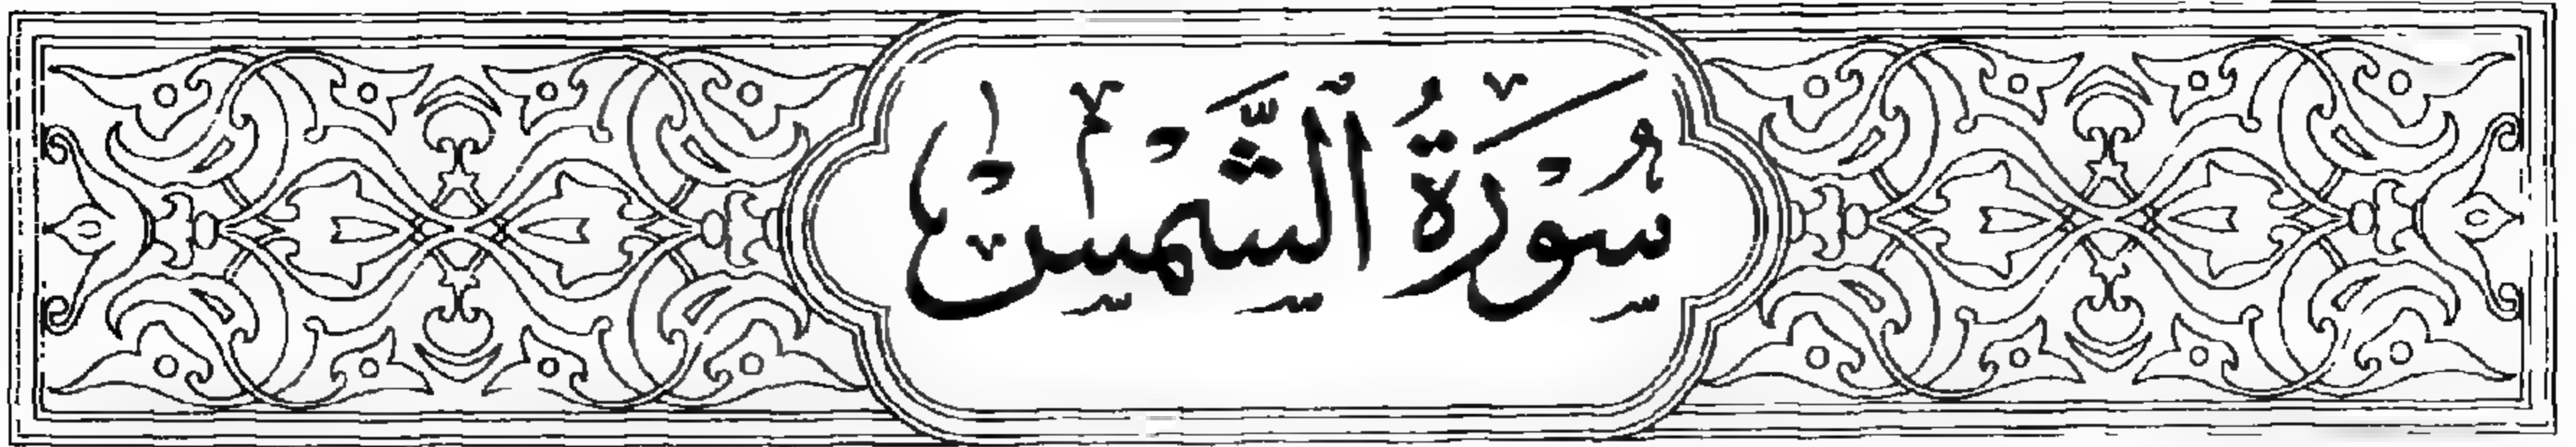 سُورَةُ ٱلشَّمْسِ